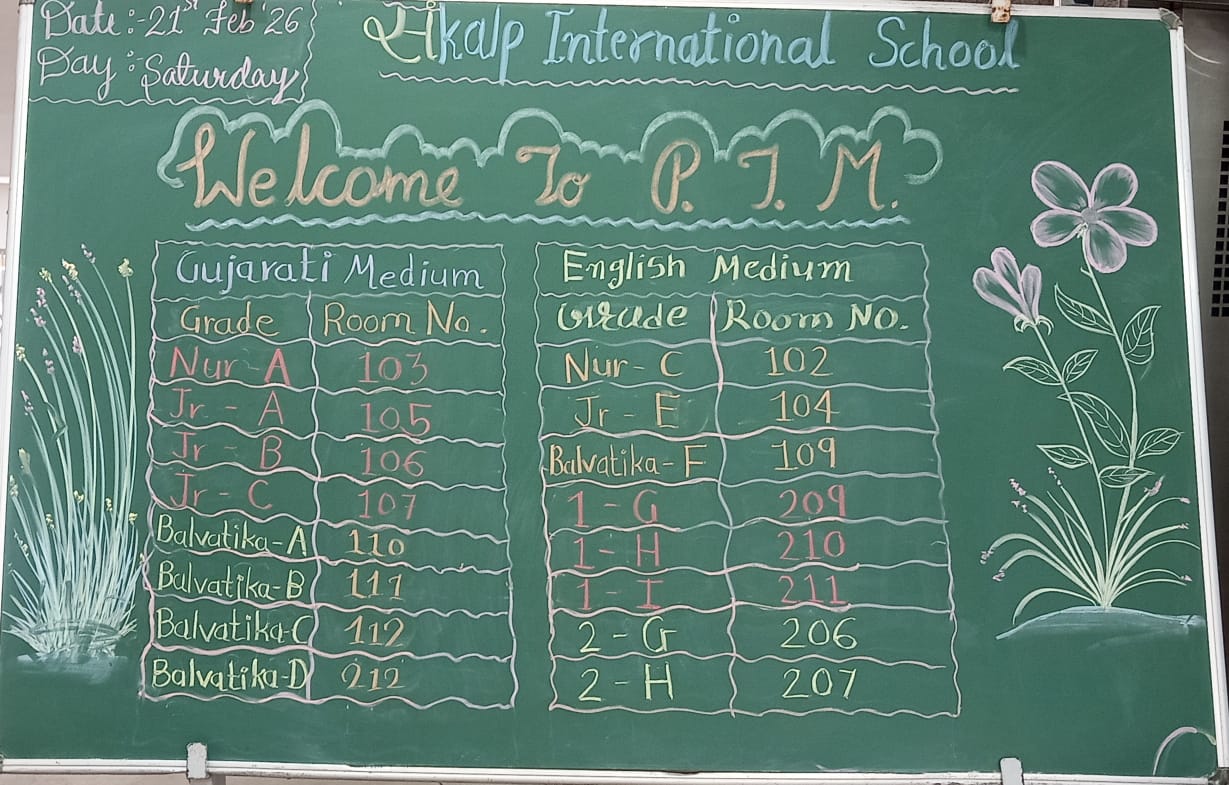 Date :- 21st Feb '26
Day :- Saturday
संkalp International School
Welcome To P. T. M.
Gujarati Medium
Grade Room No.
Nur - A 103
Jr - A 105
Jr - B 106
Jr - C 107
Balvatika - A 110
Balvatika - B 111
Balvatika - C 112
Balvatika - D 212
English Medium
Grade Room No.
Nur - C 102
Jr - E 104
Balvatika - F 109
1 - G 209
1 - H 210
1 - I 211
2 - G 206
2 - H 207